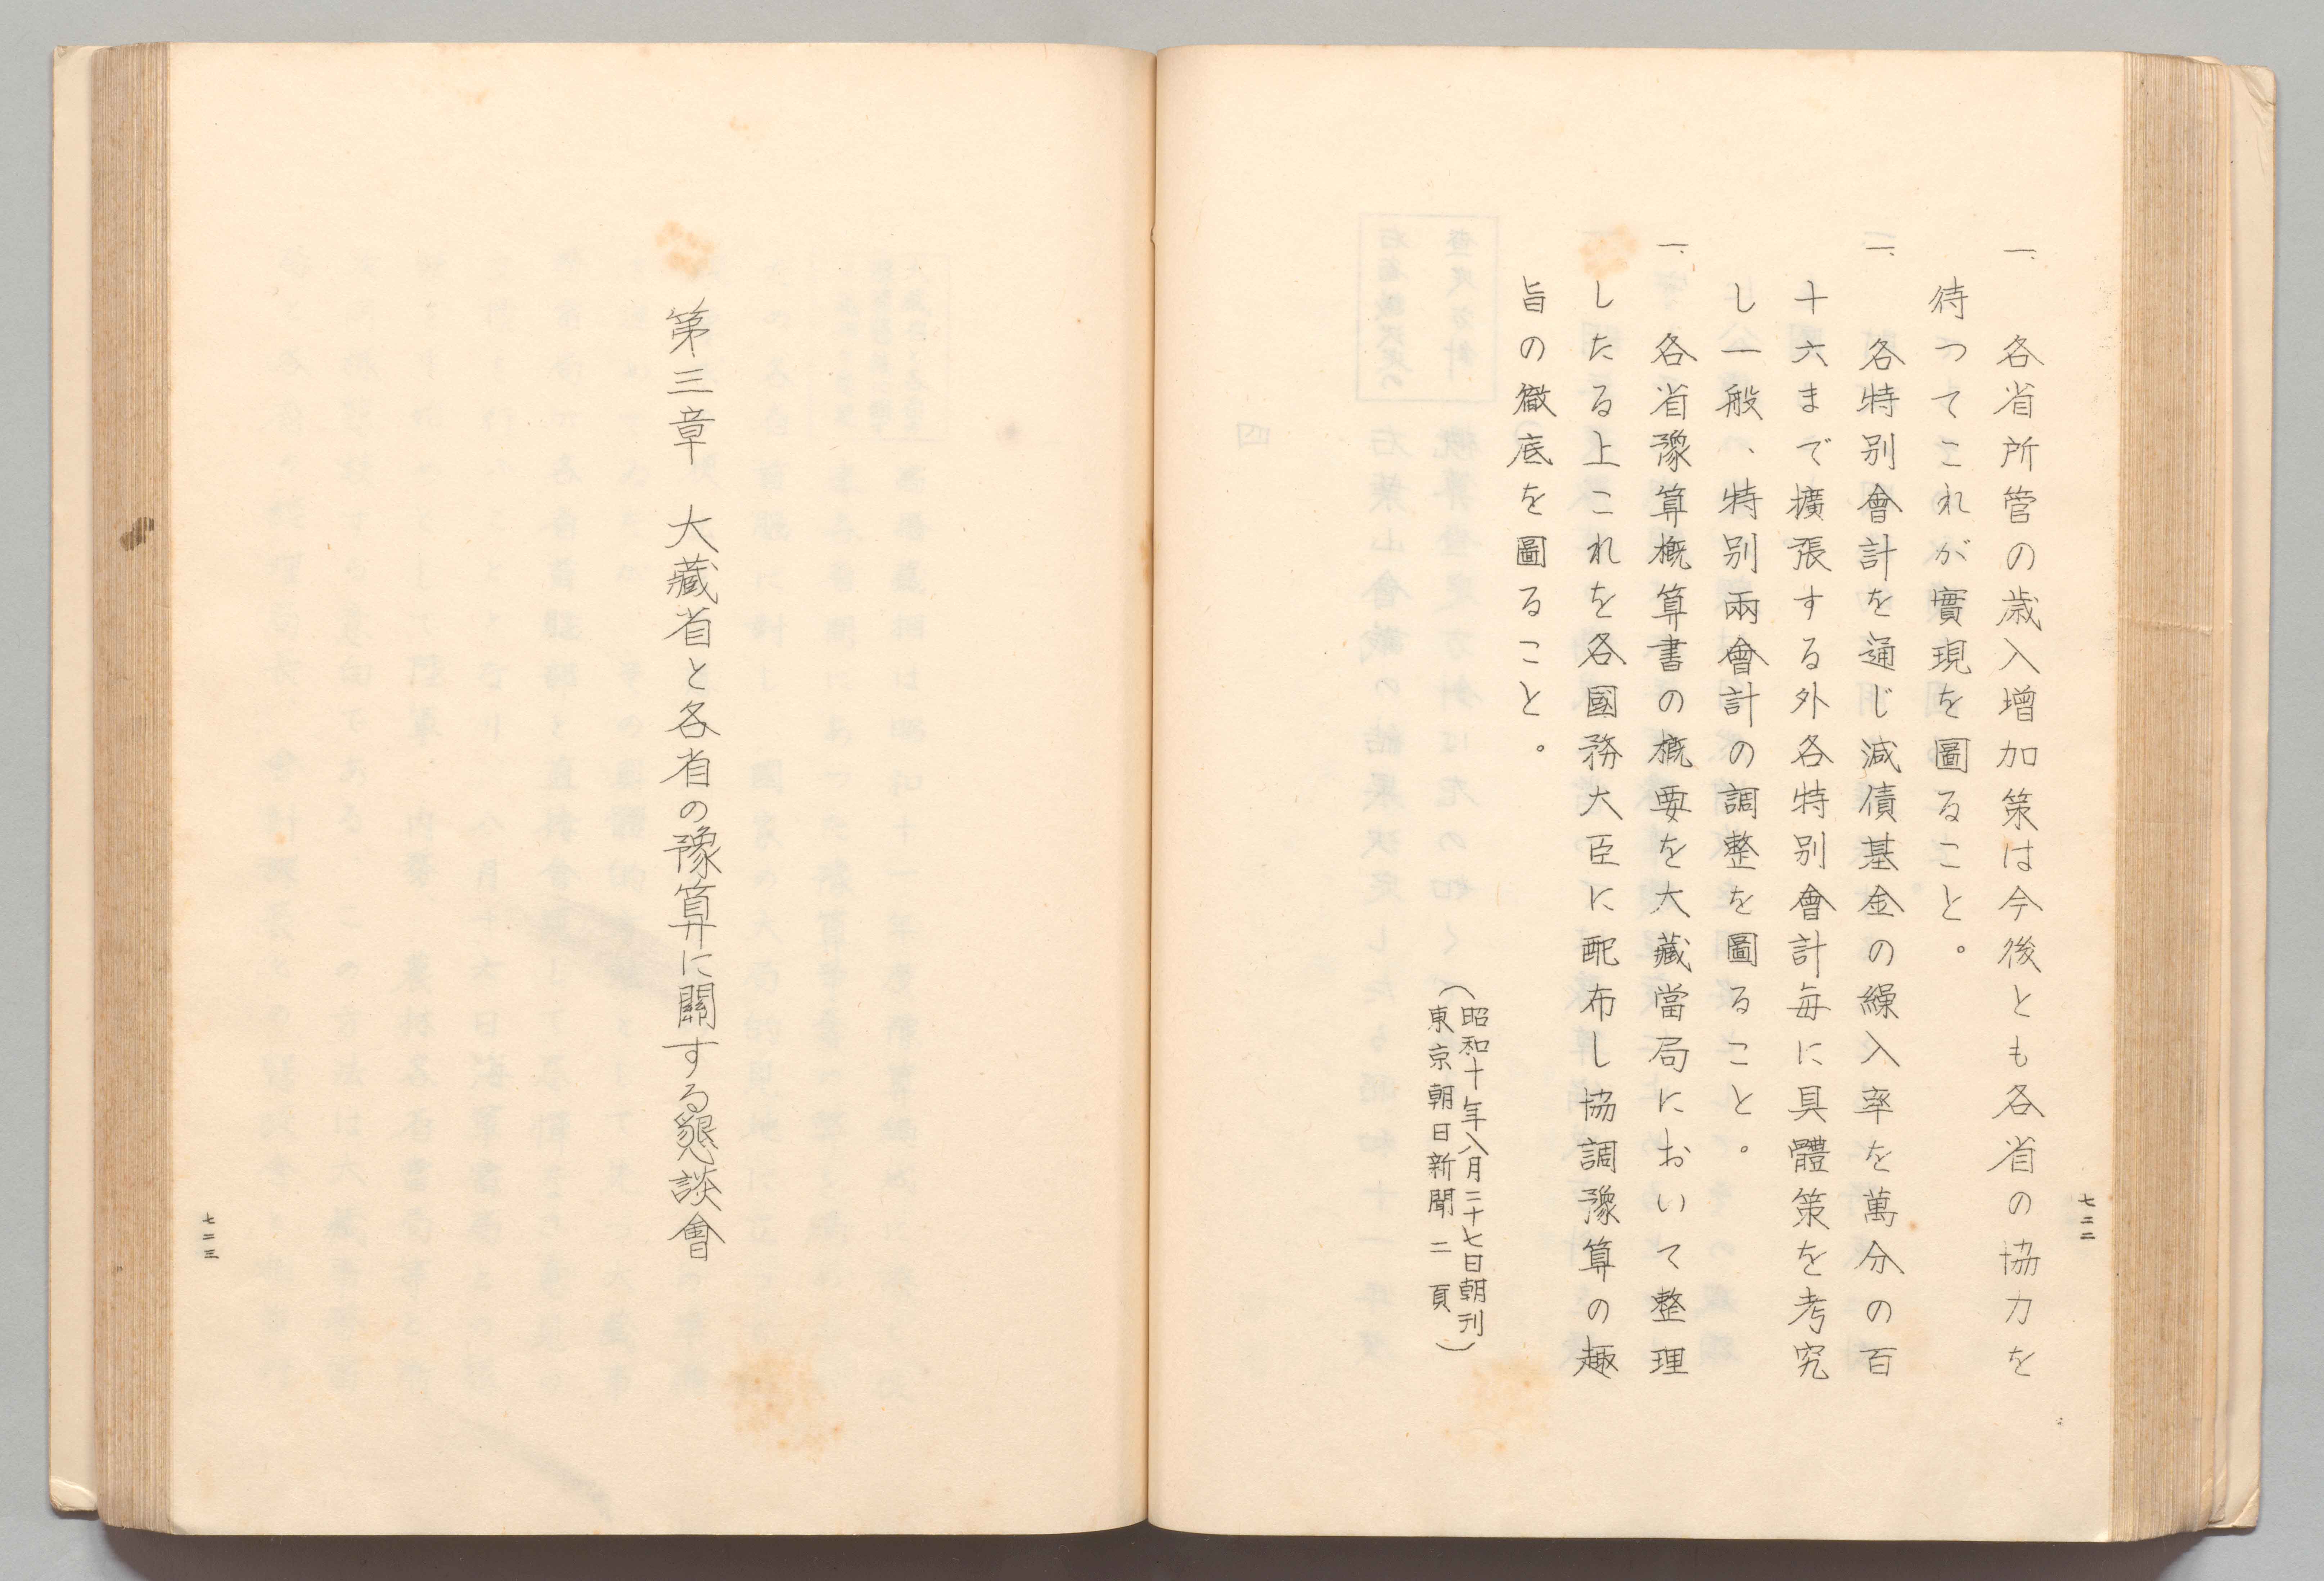 一、各省所管の歳入増加策は今後とも各省の協力を
待つてこれが實現を圖ること。
一、各特別會計を通じ減債基金の繰入率を萬分の百
十六まで擴張する外各特別會計毎に具體策を考究
し一般、特別兩會計の調整を圖ること。
一、各省豫算概算書の概要を大藏當局において整理
したる上これを各國務大臣に配布し協調豫算の趣
旨の徹底を圖ること。
（昭和十年八月二十七日朝刊
東京朝日新聞二頁）
七二二
第三章　大藏省と各省の豫算に關する懇談會
七二三